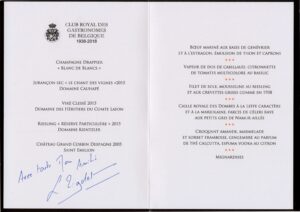 CLUB ROYAL DES
GASTRONOMES
DE BELGIQUE
1938-2018
CHAMPAGNE DRAPPIER
« BLANC DE BLANCS »
JURANÇON SEC « LE CHANT DES VIGNES » 2015
DOMAINE CAUHAPÉ
VIRÉ CLESSÉ 2015
DOMAINE DES HÉRITIERS DU COMTE LAFON
RIESLING « RÉSERVE PARTICULIÈRE » 2015
DOMAINE KIENTZLER
CHÂTEAU GRAND CORBIN DESPAGNE 2005
SAINT ÉMILION
Avec toute mon
BŒUF MARINÉ AUX BAIES DE GENÉVRIER
ET À L'ESTRAGON, ÉMULSION DE THON ET CAPRONS
VAPEUR DE DOS DE CABILLAUD, CITRONNETTE
DE TOMATES MULTICOLORE AU BASILIC
FILET DE SOLE, MOUSSELINE AU RIESLING
ET AUX CREVETTES GRISES COMME EN 1958
CAILLE ROYALE DES DOMBES A LA CHÈRE CARACTÈRE
ET À LA MARJOLAINE, FARCIE DE CÉLERI RAVE
AUX PETITS GRIS DE NAMUR AILLÉS
CROQUANT AMANDE, MARMELADE
ET SORBET FRAMBOISE, GINGEMBRE AU PARFUM
DE THÉ CALCUTTA, ESPUMA VODKA AU CITRON
MIGNARDISES